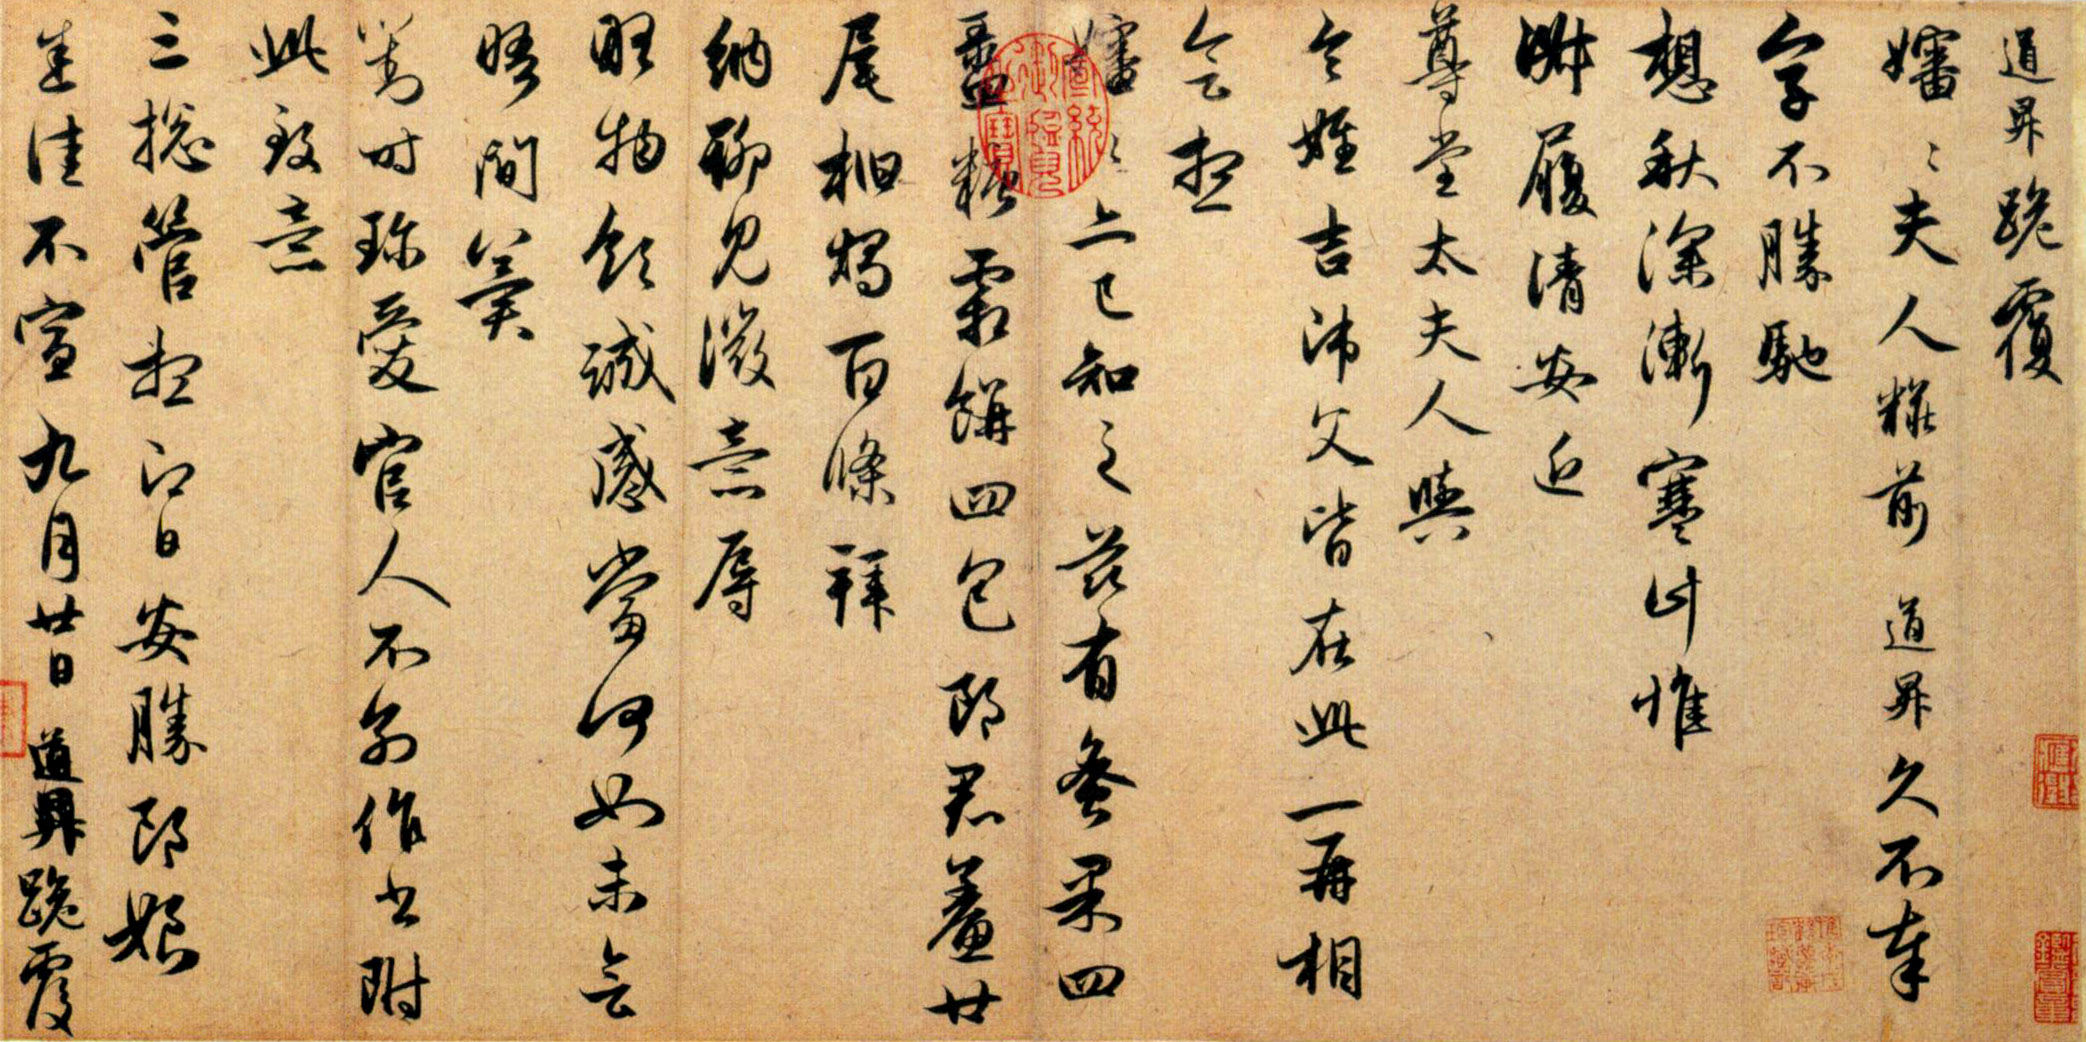 道昇跪覆
嬸〻夫人粧前道昇久不奉
字不勝馳
想秋深漸寒計惟
淑履清安近
尊堂太夫人與
令姪吉師父皆在此一再相
會想
嬸〻上已知之茲有蜜果四
盝糖霜餅四包郎君鯗廿
尾桕燭百條拜
納聊見微意辱
略物領誠感當何如未會
晤間冀
對時珍愛官人不別作書附
此致意
三總管想即日安勝郎娘
悉佳不宣九月廿日道昇跪覆